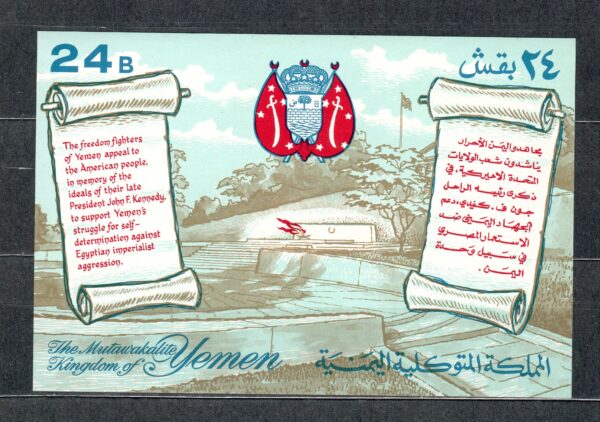 24B
٢٤ بقش
The freedom fighters
of Yemen appeal to
the American people,
in memory of the
ideals of their late
President John F. Kennedy,
to support Yemen's
struggle for self-
determination against
Egyptian imperialist
aggression.
يجاهدو اليمن الأحرار
يناشدون شعب الولايات
المتحدة الاميركية، في
ذكرى رئيسه الراحل
جون ف. كنيدي، دعم
الجهاد اليمني ضد
الاستعمار المصري
في سبيل وحدة
اليمن.
The Mutawakalite
Kingdom of Yemen
المملكة المتوكلية اليمنية